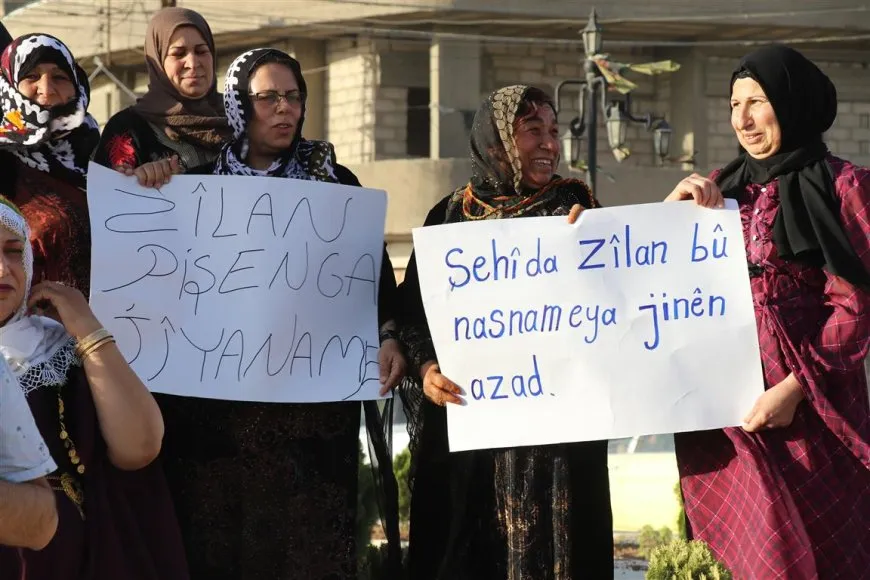 ZÎLAN
PIŞENGA
JÎYANAME
Şehîda Zîlan bû
nasnameya jinên
azad.